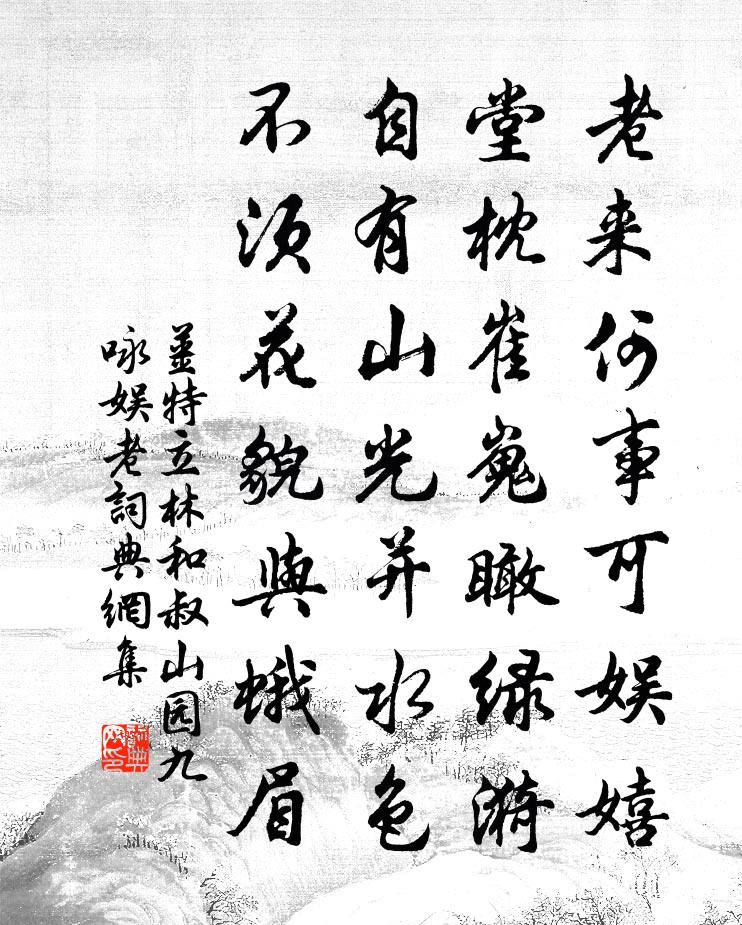 老来何事可娱嬉
堂枕崔嵬瞰绿漪
自有山光并水色
不须花貌与蛾眉
姜特立林和叔山园九
咏娱老詞典網集